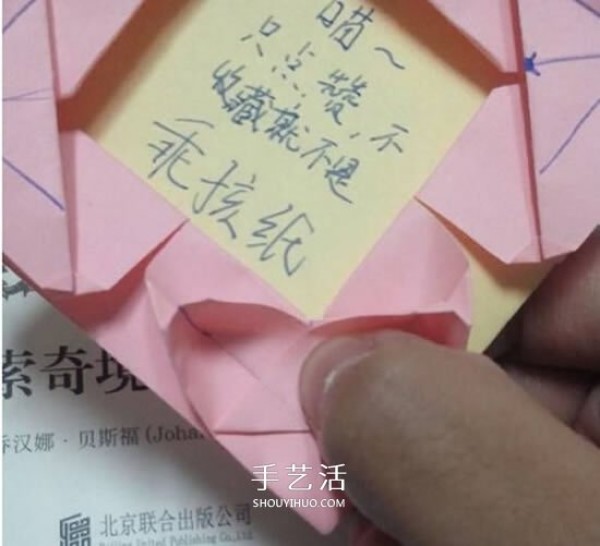 喵～
只点赞，不
收藏就不是
乖孩纸
索奇境
乔汉娜·贝斯福 (Joha
手艺活
SHOUYIHUO.COM
北京联合出版公司
Beijing United Publishing Co.,Ltd.